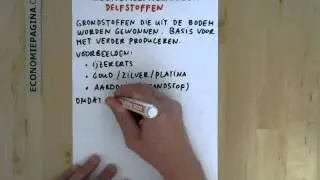 DELFSTOFFEN
GRONDSTOFFEN DIE UIT DE BODEM
WORDEN GEWONNEN. BASIS VOOR
HET VERDER PRODUCEREN.
VOORBEELDEN:
• IJZERERTS
• GOUD/ZILVER/PLATINA
OMDAT
ECONOMIEPAGINA.COM